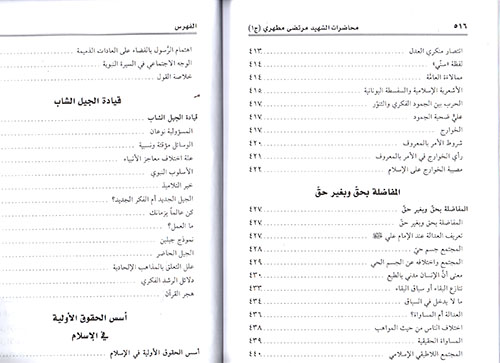 ٥١٦ محاضرات الشهيد مرتضى مطهري (ج١)
انتصار منكري العدل ٤١٣
لفظة «سنّي» ٤١٤
ممالاة العامّة ٤١٤
الأشعرية الإسلامية والسفسطة اليونانية ٤١٥
الحرب بين الجمود الفكري والتنوّر ٤١٧
عليّ ضحية الجمود ٤١٧
الخوارج ٤١٧
شروط الأمر بالمعروف ٤٢٠
رأي الخوارج في الأمر بالمعروف ٤٢١
مصيبة الخوارج على الإسلام ٤٢٢
المفاضلة بحقّ وبغير حقّ
المفاضلة بحقّ وبغير حقّ ٤٢٧
المفاضلة بحق وبغير حق ٤٢٧
تعريف العدالة عند الإمام علي ٤٢٧
المجتمع جسم حيّ ٤٢٨
المجتمع واختلافه عن الجسم الحي ٤٢٩
معنى أنّ الإنسان مدني بالطبع ٤٣٠
تنازع البقاء أو سباق البقاء ٤٣٣
ما لا يدخل في السباق ٤٣٤
العدالة أم المساواة؟ ٤٣٦
اختلاف الناس من حيث المواهب ٤٣٨
المساواة الحقيقية ٤٣٩
المجتمع اللاطبقي الإسلامي ٤٤٠
الفهرس
اهتمام الرّسول بالقضاء على العادات الذميمة
الوجه الاجتماعي في السيرة النبوية
خلاصة القول
قيادة الجيل الشاب
قيادة الجيل الشاب
المسؤولية نوعان
الوسائل مؤقتة ونسبية
علة اختلاف معاجز الأنبياء
الأسلوب النبوي
خير التلاميذ
الجيل الجديد أم الفكر الجديد؟
كن عالماً بزمانك
ما العمل؟
نموذج جيلين
الجيل الحاضر
علل التعلق بالمذاهب الإلحادية
دلائل الرشد الفكري
هجر القرآن
أسس الحقوق الأولية
في الإسلام
أسس الحقوق الأولية في الإسلام